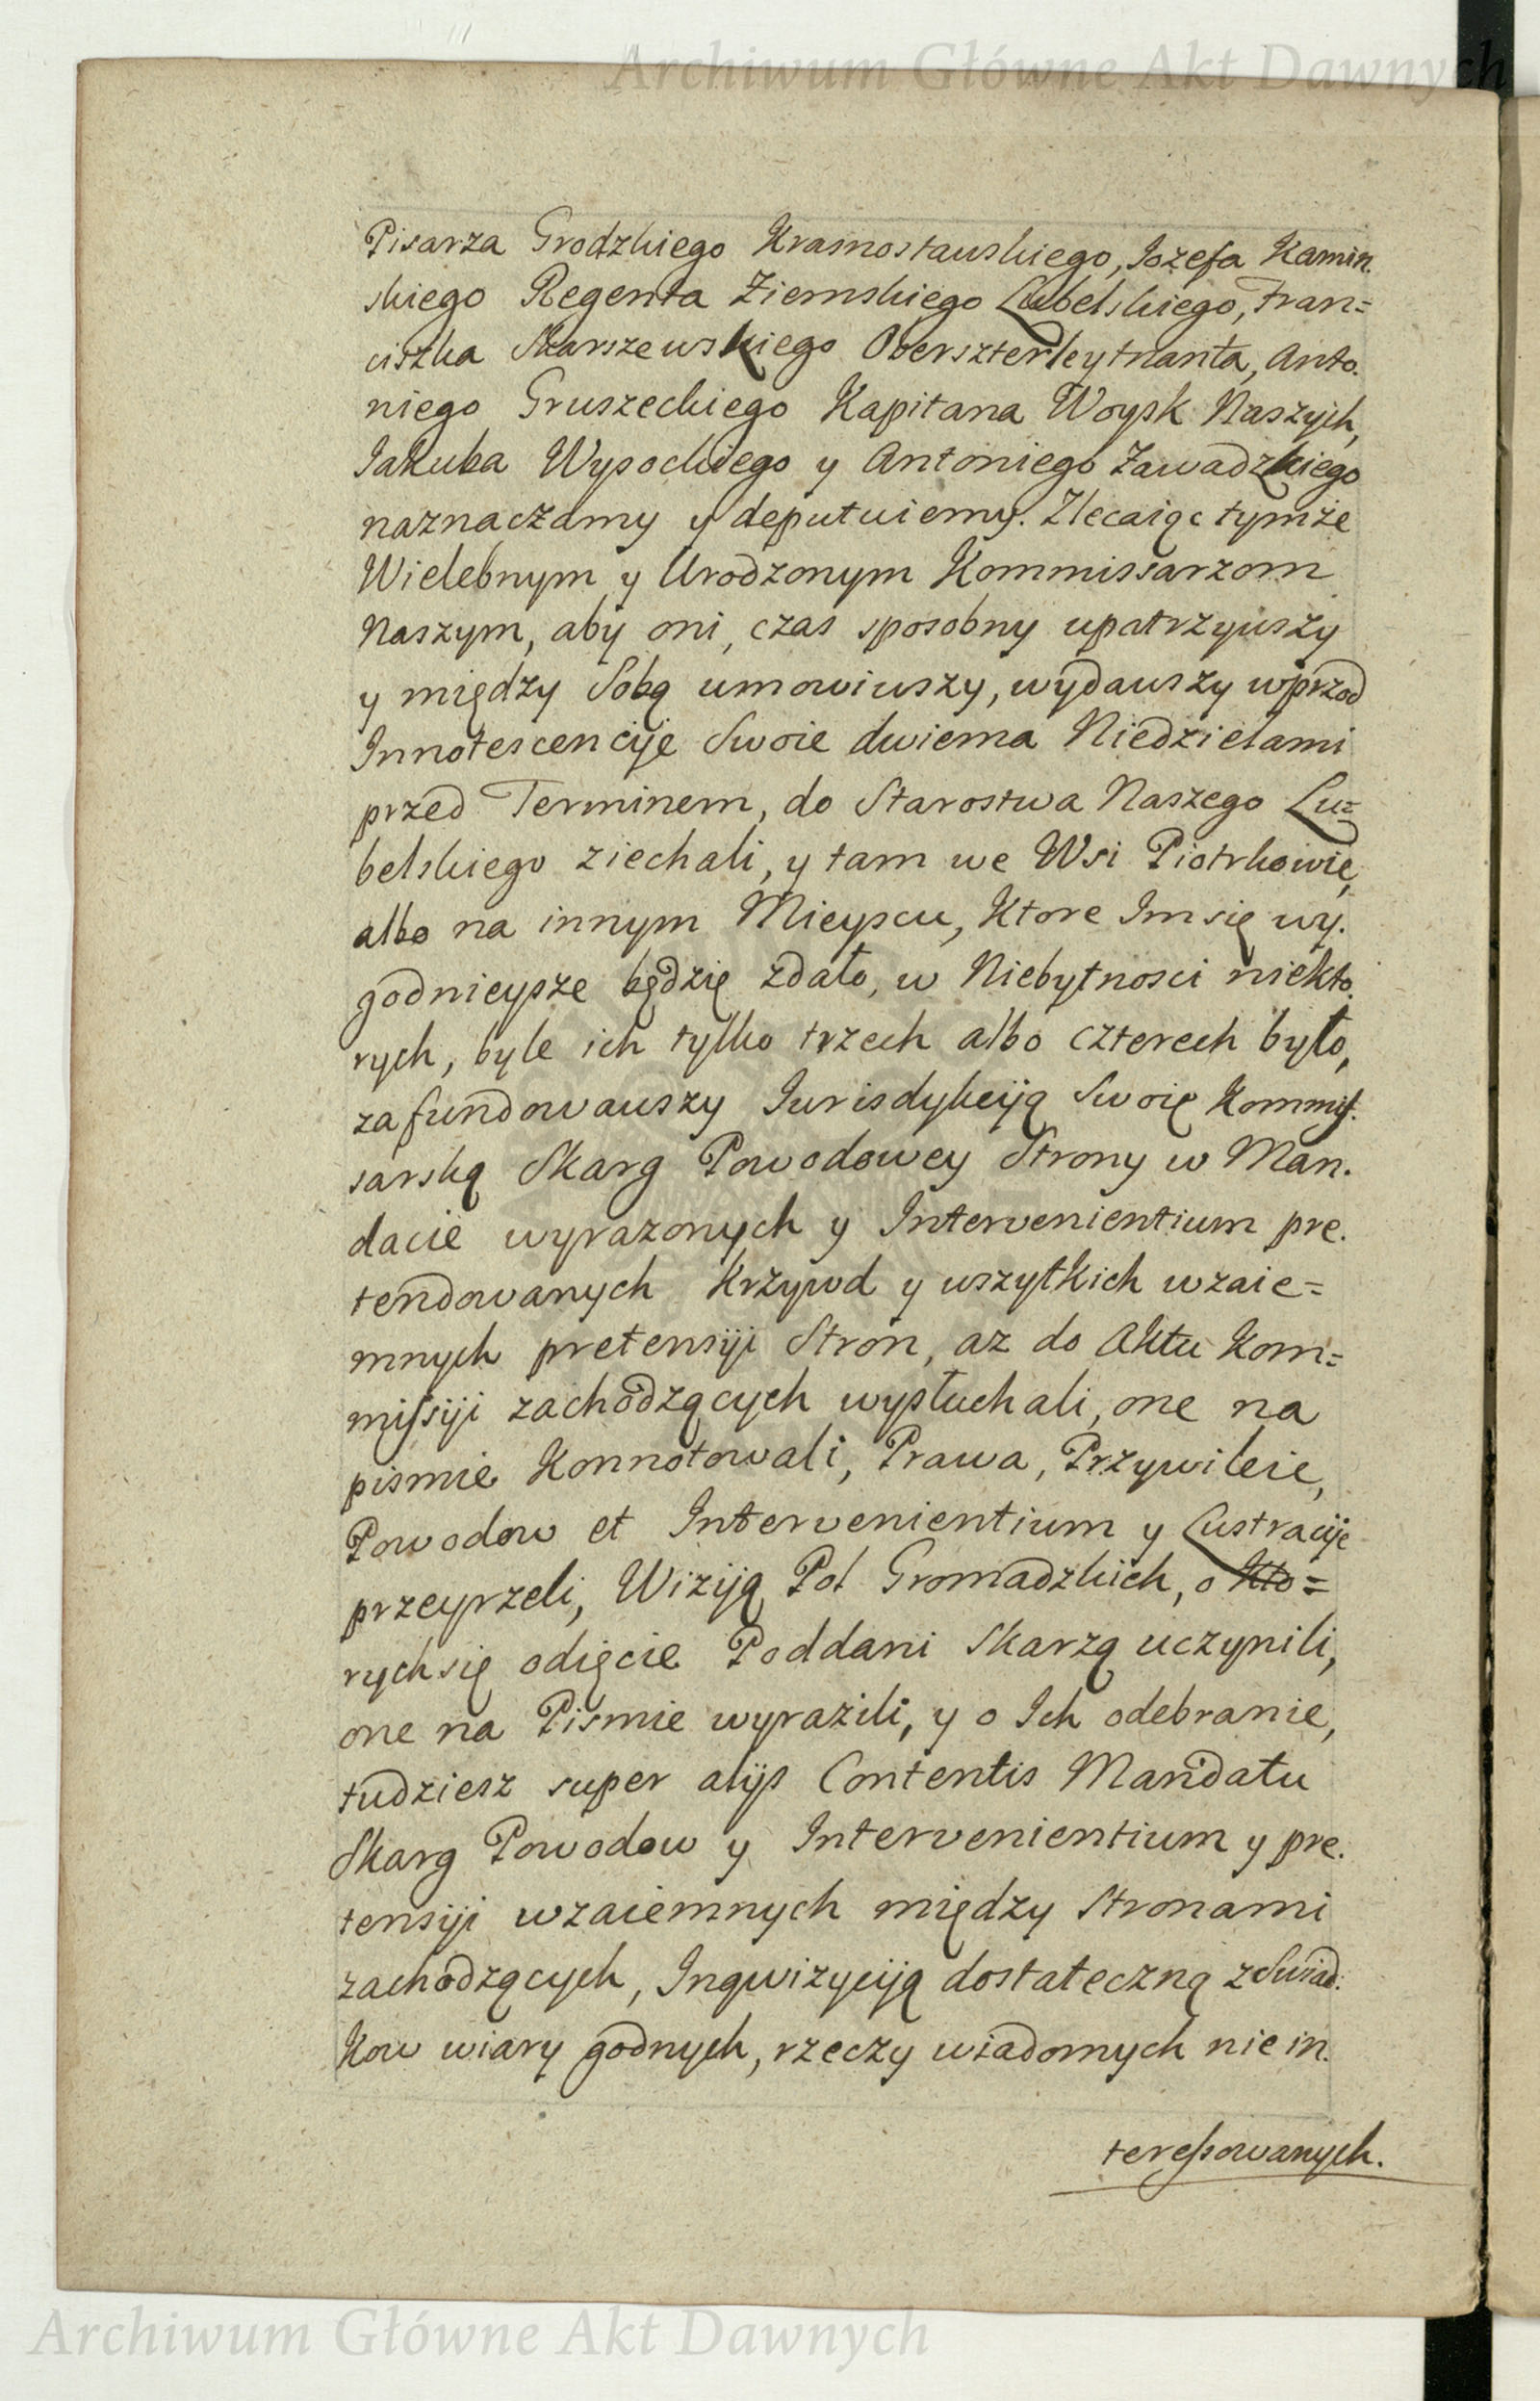 Archiwum Główne Akt Dawnych
Pisarza Grodzkiego Krasnostawskiego, Jozefa Kamin.
skiego Regenta Ziemskiego Lubelskiego, Fran=
ciszka Skarszewskiego Oberszterleytnanta, Anto.
niego Gruszeckiego Kapitana Woysk Naszych,
Jakuba Wysockiego y Antoniego Zawadzkiego
naznaczamy y deputuiemy. Zlecaiąc tymże
Wielebnym y Urodzonym Kommissarzom
Naszym, aby oni, czas sposobny upatrzywszy
y między Sobą umowiwszy, wydawszy wprzod
Innotescencije Swoie dwiema Niedzielami
przed Terminem, do Starostwa Naszego Lu=
belskiego ziechali, y tam we Wsi Piotrkowie,
albo na innym Mieyscu, Ktore Im się wy.
godnieysze będzie zdało, w Niebytnosci niekto.
rych, byle ich tylko trzech albo czterech było,
zafundowawszy Jurisdykcyją Swoię Kommis.
sarską Skarg Powodowey Strony w Man.
dacie wyrazonych y Intervenientium pre.
tendowanych Krzywd y wszytkich wzaie=
mnych pretensyi Stron, az do Aktu Kom=
missyi zachodzących wysłuchali, one na
pismie Konnotowali, Prawa, Przywileie,
Powodow et Intervenientium y Lustracije
przeyrzeli, Wiziją Pol Gromadzkich, o Kto=
rych się odięcie Poddani Skarzą uczynili,
one na Pismie wyrazili, y o Ich odebranie,
tudziesz super alijs Contentis Mandatu
Skarg Powodow y Intervenientium y pre.
tensyi wzaiemnych między Stronami
zachodzących, Inqwizyciją dostateczną z Swiad.
Kow wiary godnych, rzeczy wiadomych nie in.
teressowanych.
Archiwum Główne Akt Dawnych